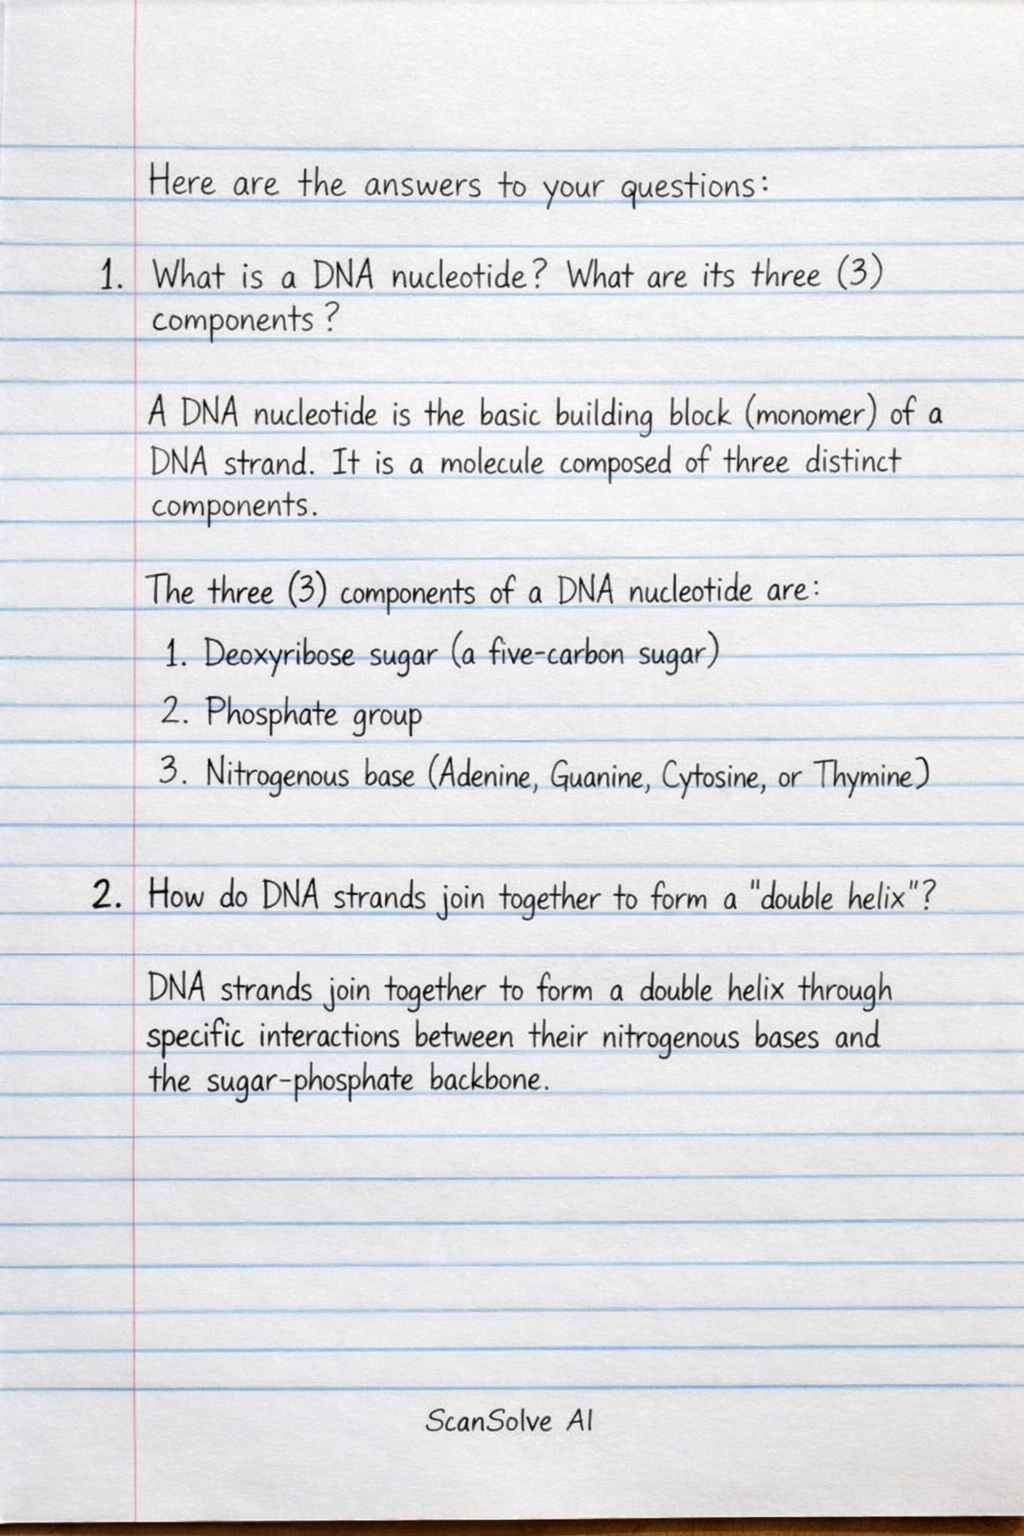 Here are the answers to your questions:
1. What is a DNA nucleotide? What are its three (3)
components?
A DNA nucleotide is the basic building block (monomer) of a
DNA strand. It is a molecule composed of three distinct
components.
The three (3) components of a DNA nucleotide are:
1. Deoxyribose sugar (a five-carbon sugar)
2. Phosphate group
3. Nitrogenous base (Adenine, Guanine, Cytosine, or Thymine)
2. How do DNA strands join together to form a "double helix"?
DNA strands join together to form a double helix through
specific interactions between their nitrogenous bases and
the sugar-phosphate backbone.
ScanSolve AI